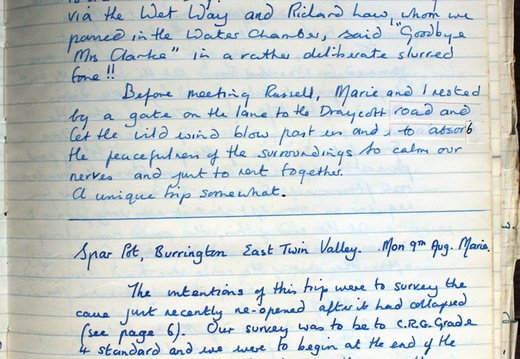 via the Wet Way and Richard Law, whom we
passed in the Water Chamber, said "Goodbye
Mrs Clarke" in a rather deliberate slurred
tone!!
Before meeting Russell, Marie and I rested
by a gate on the lane to the Draycott road and
let the wild wind blow past us and to absorb
the peacefulness of the surroundings to calm our
nerves and just to rest together.
A unique trip somewhat.
Spar Pot, Burrington East Twin Valley. Mon 9th Aug. Marie.
The intentions of this trip were to survey the
cave just recently re-opened after it had collapsed
(see page 6). Our survey was to be to C.R.G. Grade
4 standard and we were to begin at the end of the